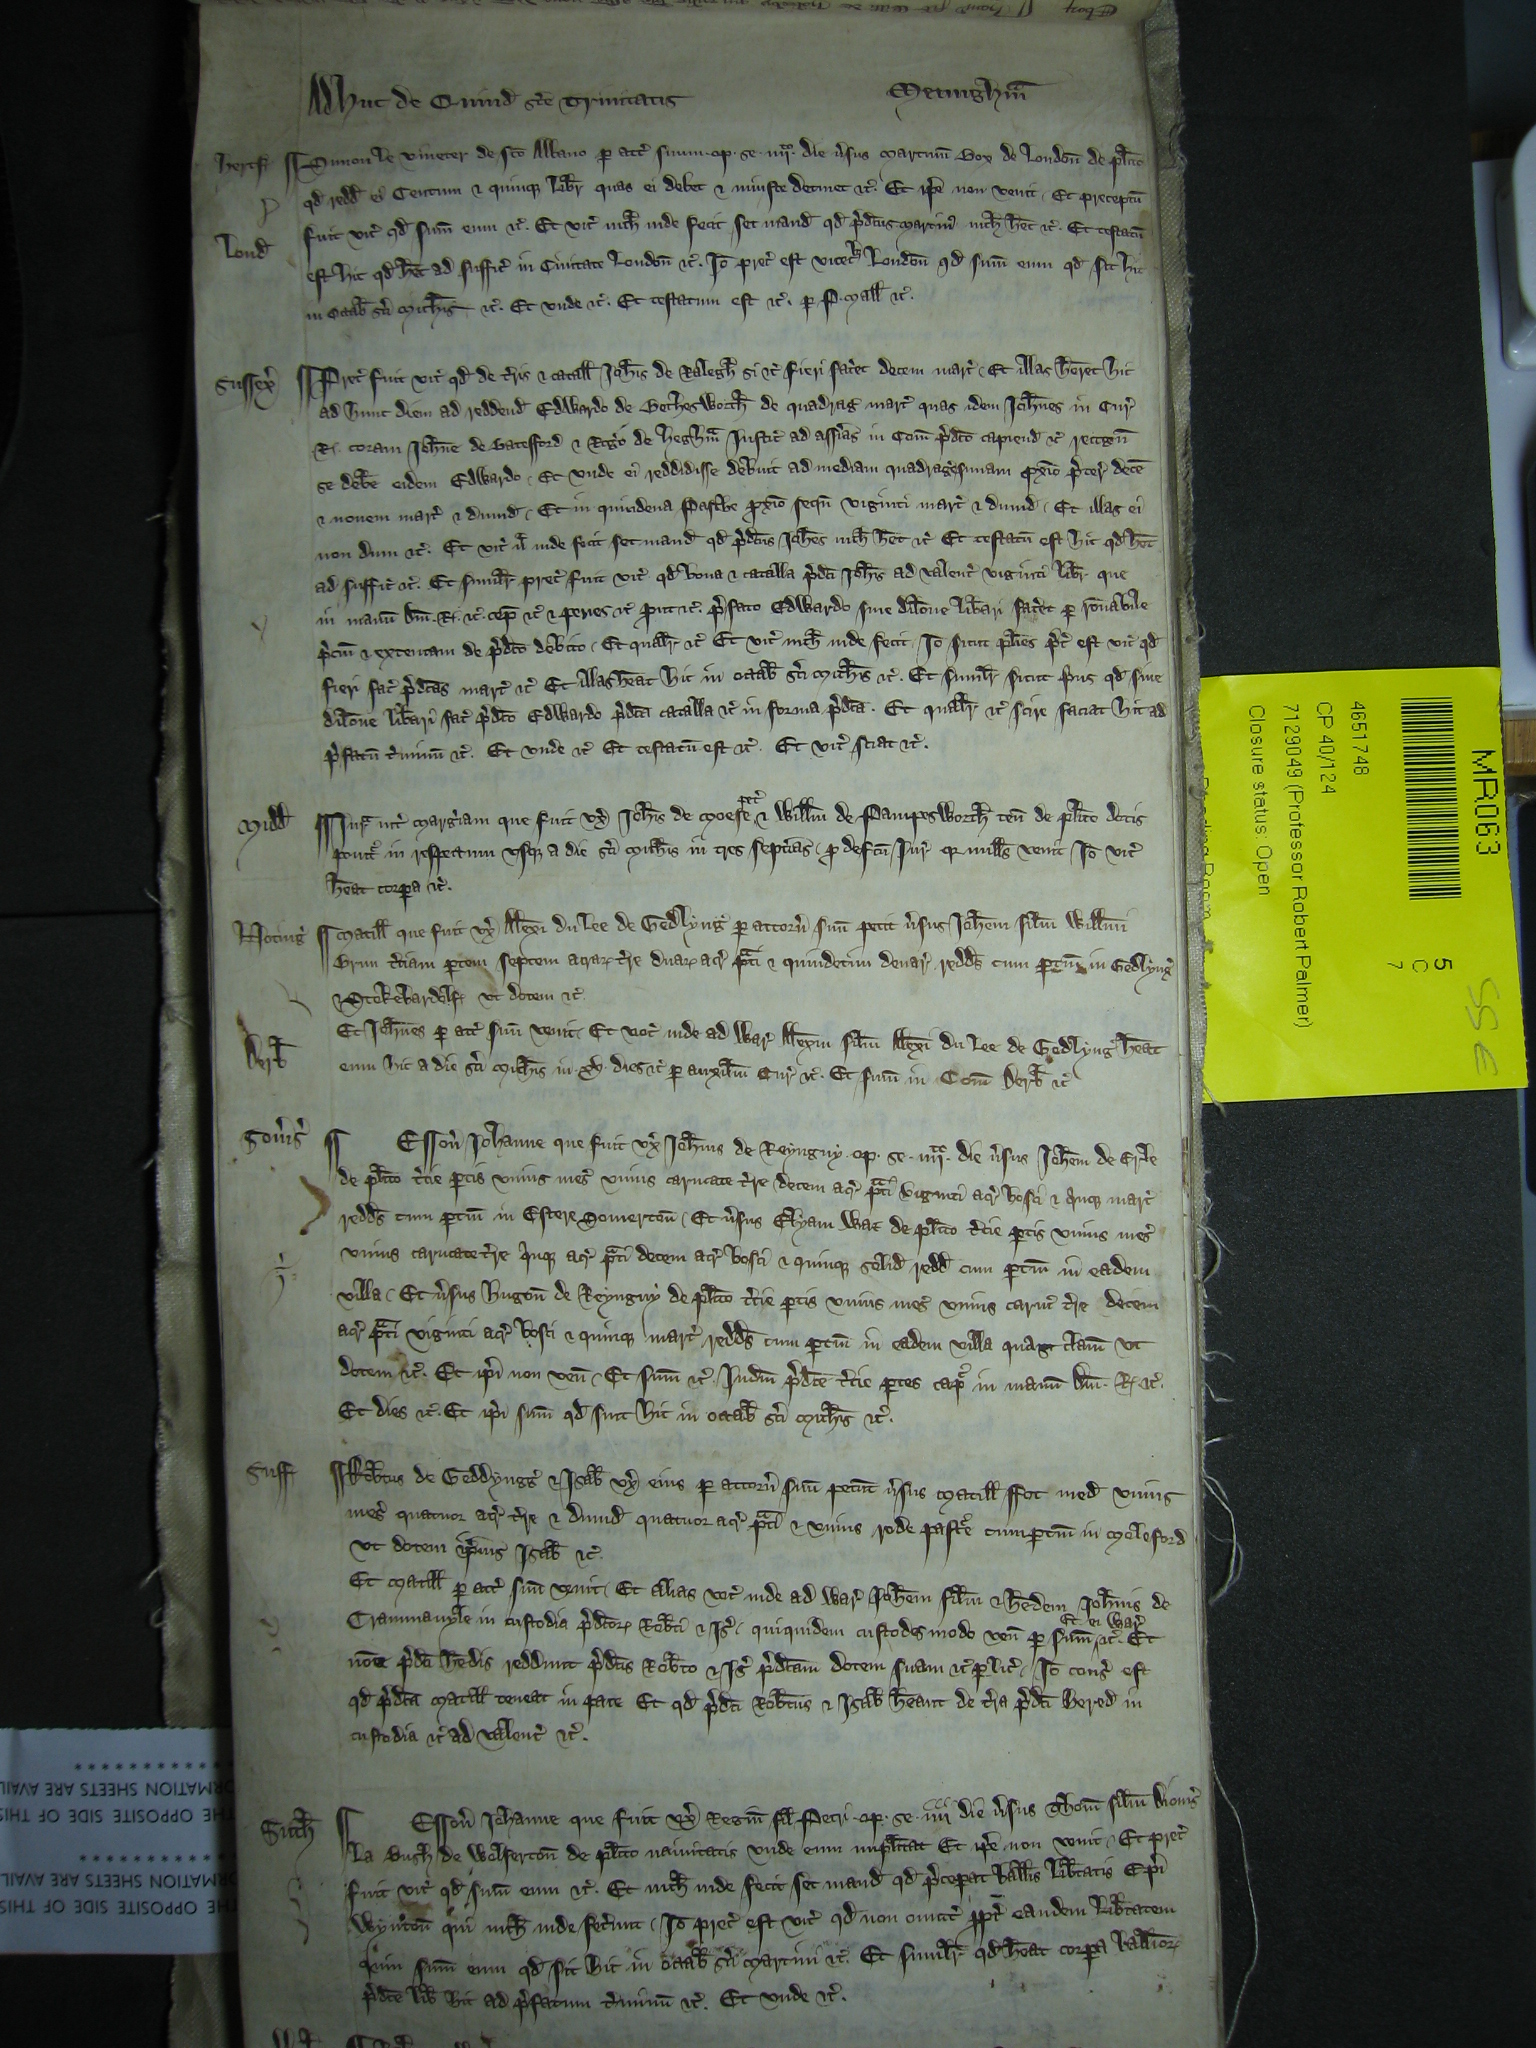 Adhuc de Quind sce Trinitatis Metingham
hertf Simon le vineter de sco Albano p attc suum op. se. iiijo. die vsus Martinum Box de Londoñ de plito
qd redd ei Centum & quinq, libr quas ei debet & iniuste detinet &c. Et ipe non venit. Et preceptũ
fuit vic qd sum eum &c. Et vic nich inde fecit set mand qd pdcus Martin nich het &c. Et testatũ
Lond est hic qd het ad suffic in Civitate Londoñ &c. Io prec est vicec Londoñ qd sum eum qd sit hic
in Octab sci Michis &c. Et unde &c. Et testatum est &c. p P. Mall &c.
Sussex Prec fuit vic qd de tris & catall Johis de Ralegh si &c fieri facet decem marc. Et illas heret hic
ad hunc diem ad reddend Edwardo de Bechesworth de quadrag marc quas idem Johnes in Cur
R. coram Johne de Batesford & Rogo de Heghm Justic ad assias in Com pdco capiend &c recogñ
se debe eidem Edwardo. Et unde ei reddidisse debuit ad mediam quadragesimam pxio pter decē
& novem marc & dimid. Et in quindena Pasche pxio sequ viginti marc & dimid. Et illas ei
non dum &c. Et vic nl inde fecit set mand qd pdcus Johes nich het &c Et testatũ est hic qd het
ad suffic &c. Et similr prec fuit vic qd bona & catalla pdci Johis ad valenc viginti libr que
in manũ dni. R. &c. cep &c & penes &c put &c. pfato Edwardo sine dilone libari facet p ronabile
pciũ & extentam de pdco debito. Et qualr &c Et vic nich inde fecit. Io sicut plies pc est vic qd
fieri fac pdcas marc &c Et illas heat hic in octab sci Michis &c. Et similr sicut prius qd sine
dilone libari fac pdco Edwardo pdca catalla &c in forma pdca. Et qualr &c scire faciat hic ad
pfatũ tminũ &c. Et unde &c Et testatũ est &c. Et vic sciat &c.
Midd Jur int Margiam que fuit ux Johis de & Willm de Pampesworth teñ de plito dotis
ponit in respectum usq, a die sci Michis in tres septias p defcũ Jur q nulls venit Io vic
heat corpa &c.
Noting Matill que fuit ux Alexi du Lee de Gedlyng p attorñ suũ petit vsus Johem filiũ Willmi
Brun tciam ptem septem acrar tre duar acr pti & quindecim denar redds cum ptin in Gedlyng
& Stokebardolf ut dotem &c.
Et Johnes p attc suũ venit. Et voc inde ad War Alexm filiũ Alexi du Lee de Gedlyng heat
Derb eum hic a die sci Michis in xv. dies &c p auxiliũ Cur &c. Et sum in Com Derb &c
Somers Essoñ Johanne que fuit ux Johnis de Reyngny op. se. iiijo. die vsus Johem de Erle
de plito tcie ptis unius mes unius carucate tre decem acr pti viginti acr bosci & quinq marc
redds cum ptin in Estere Somertoñ. Et vsus Elyam Wac de plito tcie ptis unius mes
unius carucate tre quinq acr pti decem acr bosci & quinque solid redd cum ptin in eadem
villa. Et vsus Hugoñ de Reyngny de plito tcie ptis unius mes unius caruc tre decem
acr pti viginti acr bosci & quinq marc redds cum ptin in eadem villa quas clam ut
dotem &c. Et ipi non veñ. Et sum &c. Judm pdce tcie ptes cap in manũ dni. R. &c.
Et dies &c. Et ipi sum qd sint hic in octab sci Michis &c.
Suff Robtus de Geddyngg & Isab ux eius p attorñ suũ petunt vsus Matill Fot med unius
mes quatuor acr tre & dimid quatuor acr pti & unius rode pastre cum ptin in Meleford
ut dotem ipius Isab &c.
Et Matill p attc suũ venit. Et alias voc inde ad War Johem filiũ & hedem Johnis de
Crammavyle in custodia pdcor Robti & Is. quiquidem custodes modo veñ p sum &c. Et ei War. Et
noie pdci hedis reddunt pdcis Robto & Is pdcam dotem suam &c p lic. Io cons est
qd pdca Matill teneat in pace Et qd pdci Robtus & Isab heant de tra pdci hered in
custodia &c ad valenc &c.
Suth Essoñ Johanne que fuit ux Regin fil Petri op. se. iiij die vsus Thom filiũ Dionis
La Bush de Wolfertoñ de plito naivitatis unde eum implitat Et ipe non venit. Et prec
fuit vic qd sum eum &c. Et nich inde fecit set mand qd pcepat ballis libtatis Epi
Wyntoñ qui nich inde fecunt. Io prec est vic qd non omitt ppt eandem libtatem
quin sum eum qd sit hic in octab sci Martini &c. Et similr qd heat corpa ballior
pdce lib hic ad pfatum tminũ &c. Et unde &c.
MR063
4651748
CP 40/124
7129049 (Professor Robert Palmer)
Closure status: Open
5
C
7
SSE
THE OPPOSITE SIDE OF THIS
RMATION SHEETS ARE AVAIL
THE OPPOSITE SIDE OF THIS
RMATION SHEETS ARE AVAIL